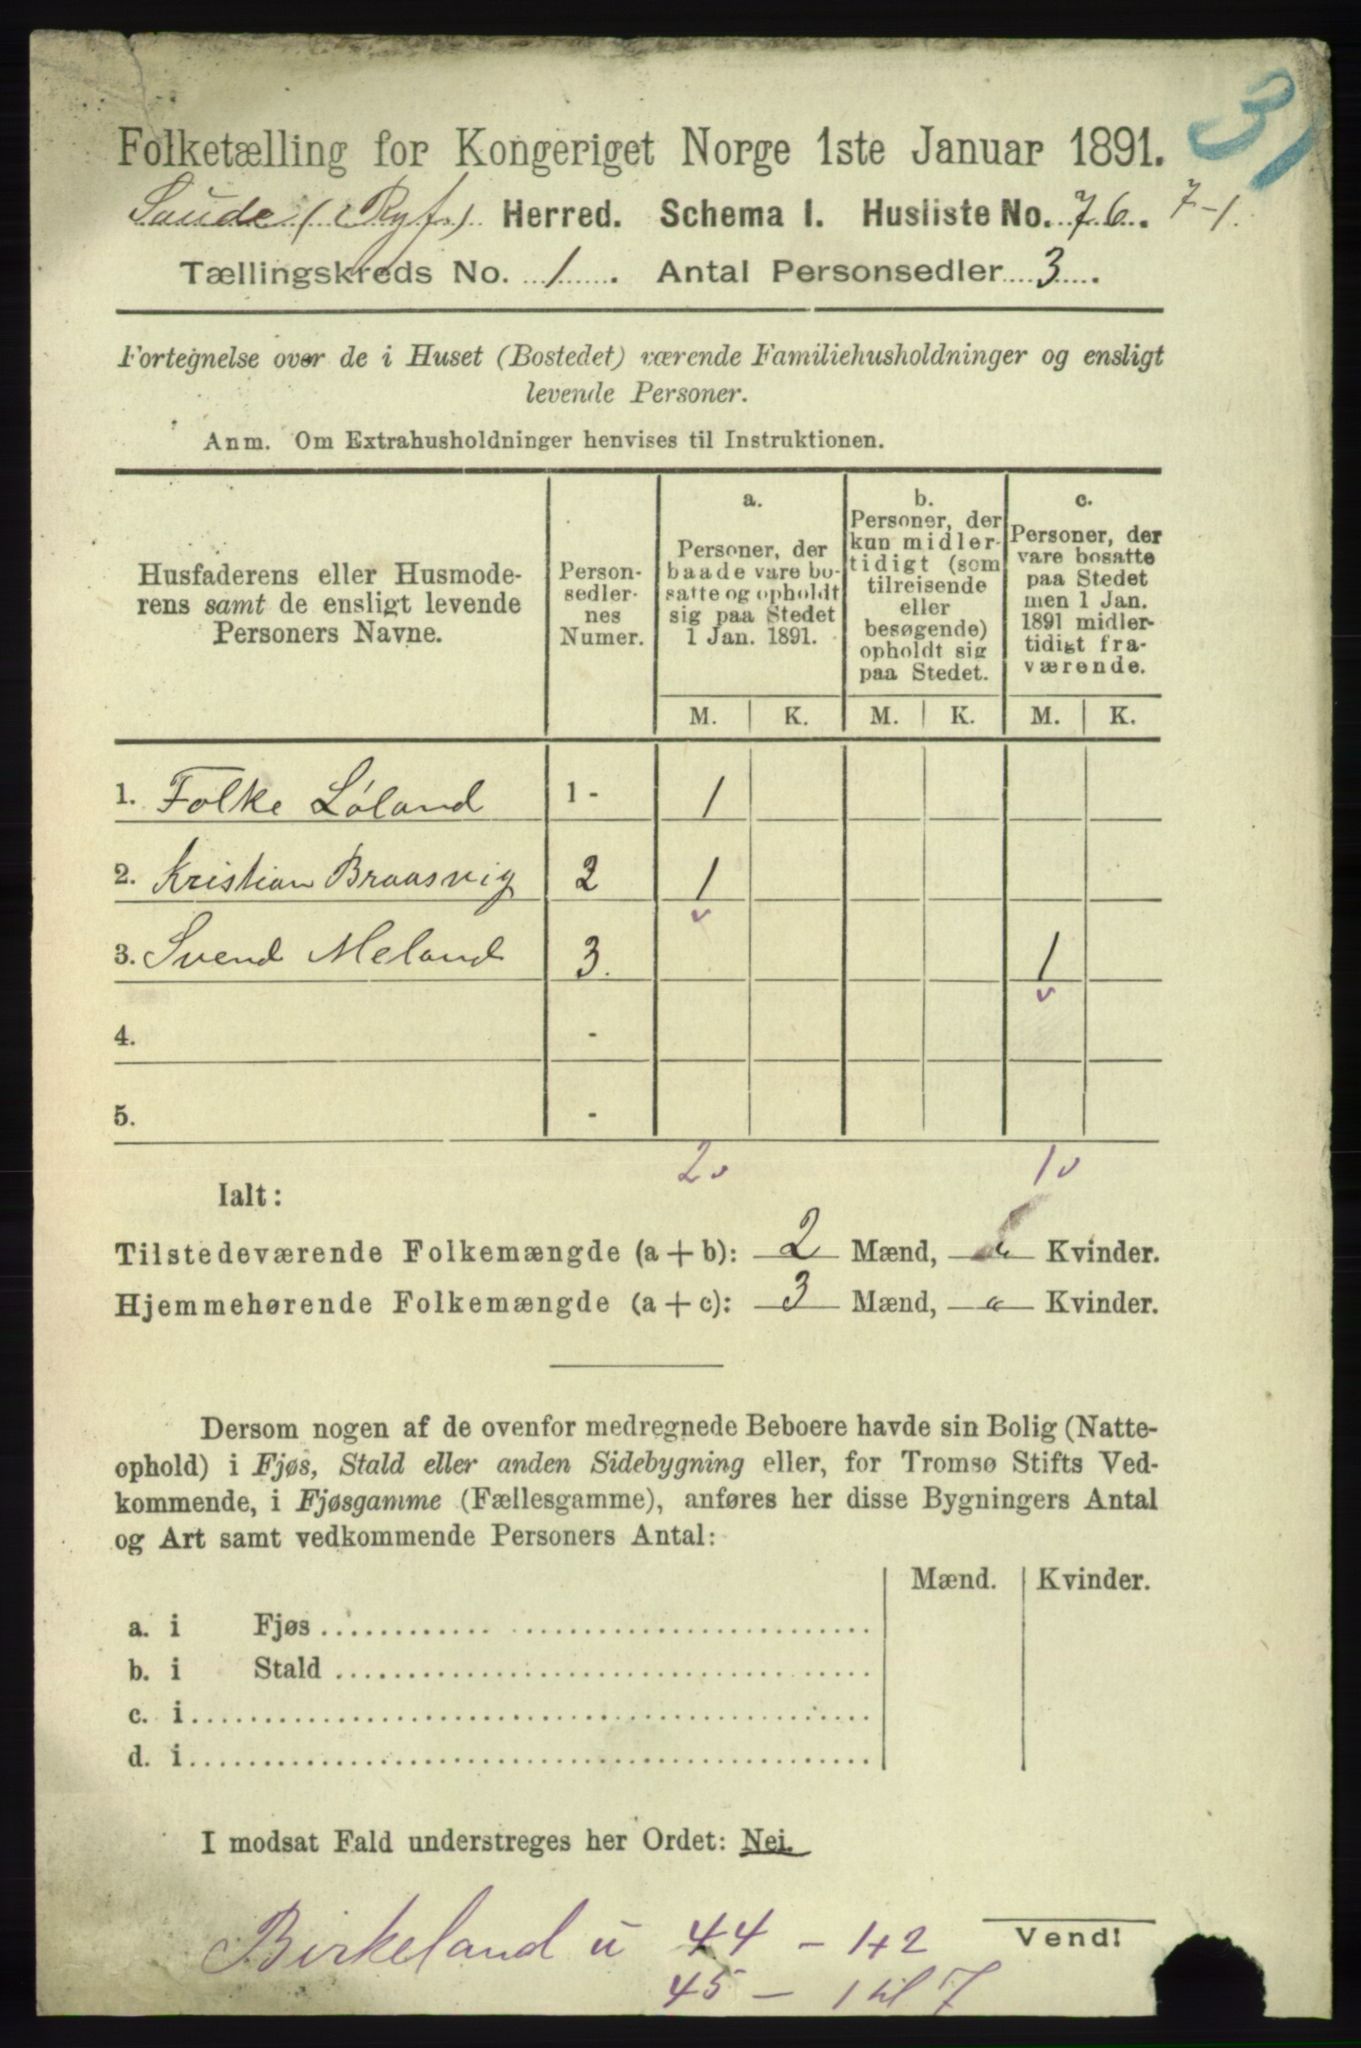 31
Folketælling for Kongeriget Norge 1ste Januar 1891.
Saude (Ryf.) Herred. Schema I. Husliste No. 76. 7-1
Tællingskreds No. 1. Antal Personsedler 3.
Fortegnelse over de i Huset (Bostedet) værende Familiehusholdninger og ensligt
levende Personer.
Anm. Om Extrahusholdninger henvises til Instruktionen.
Husfaderens eller Husmode-
rens samt de ensligt levende
Personers Navne.
Person-
sedler-
nes
Numer.
a.
Personer, der
baade vare bo-
satte og opholdt
sig paa Stedet
1 Jan. 1891.
b.
Personer, der
kun midler-
tidigt (som
tilreisende
eller
besøgende)
opholdt sig
paa Stedet.
c.
Personer, der
vare bosatte
paa Stedet
men 1 Jan.
1891 midler-
tidigt fra-
værende.
M. K. M. K. M. K.
1. Folke Løland 1 - 1
2. Kristian Braasvig 2 1
v
3. Svend Meland 3. 1
v
4. -
5. -
2 v 1 v
Ialt:
Tilstedeværende Folkemængde (a + b): 2 Mænd, Kvinder.
Hjemmehørende Folkemængde (a + c): 3 Mænd, Kvinder.
Dersom nogen af de ovenfor medregnede Beboere havde sin Bolig (Natte-
ophold) i Fjøs, Stald eller anden Sidebygning eller, for Tromsø Stifts Ved-
kommende, i Fjøsgamme (Fællesgamme), anføres her disse Bygningers Antal
og Art samt vedkommende Personers Antal:
Mænd. Kvinder.
a. i Fjøs
b. i Stald
c. i
d. i
I modsat Fald understreges her Ordet: Nei.
Birkeland u 44 - 1+2
Vend!
45 - 1 til 7